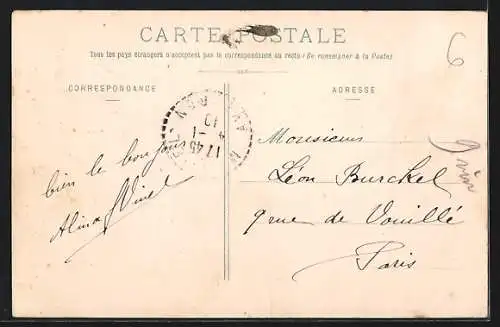 CARTE POSTALE
Tous les pays étrangers n'acceptent pas la correspondance au recto (Se renseigner à la Poste)
CORRESPONDANCE
ADRESSE
6
bien le bonjour
Monsieur
Léon Burckel
9 rue de Vouillé
Paris